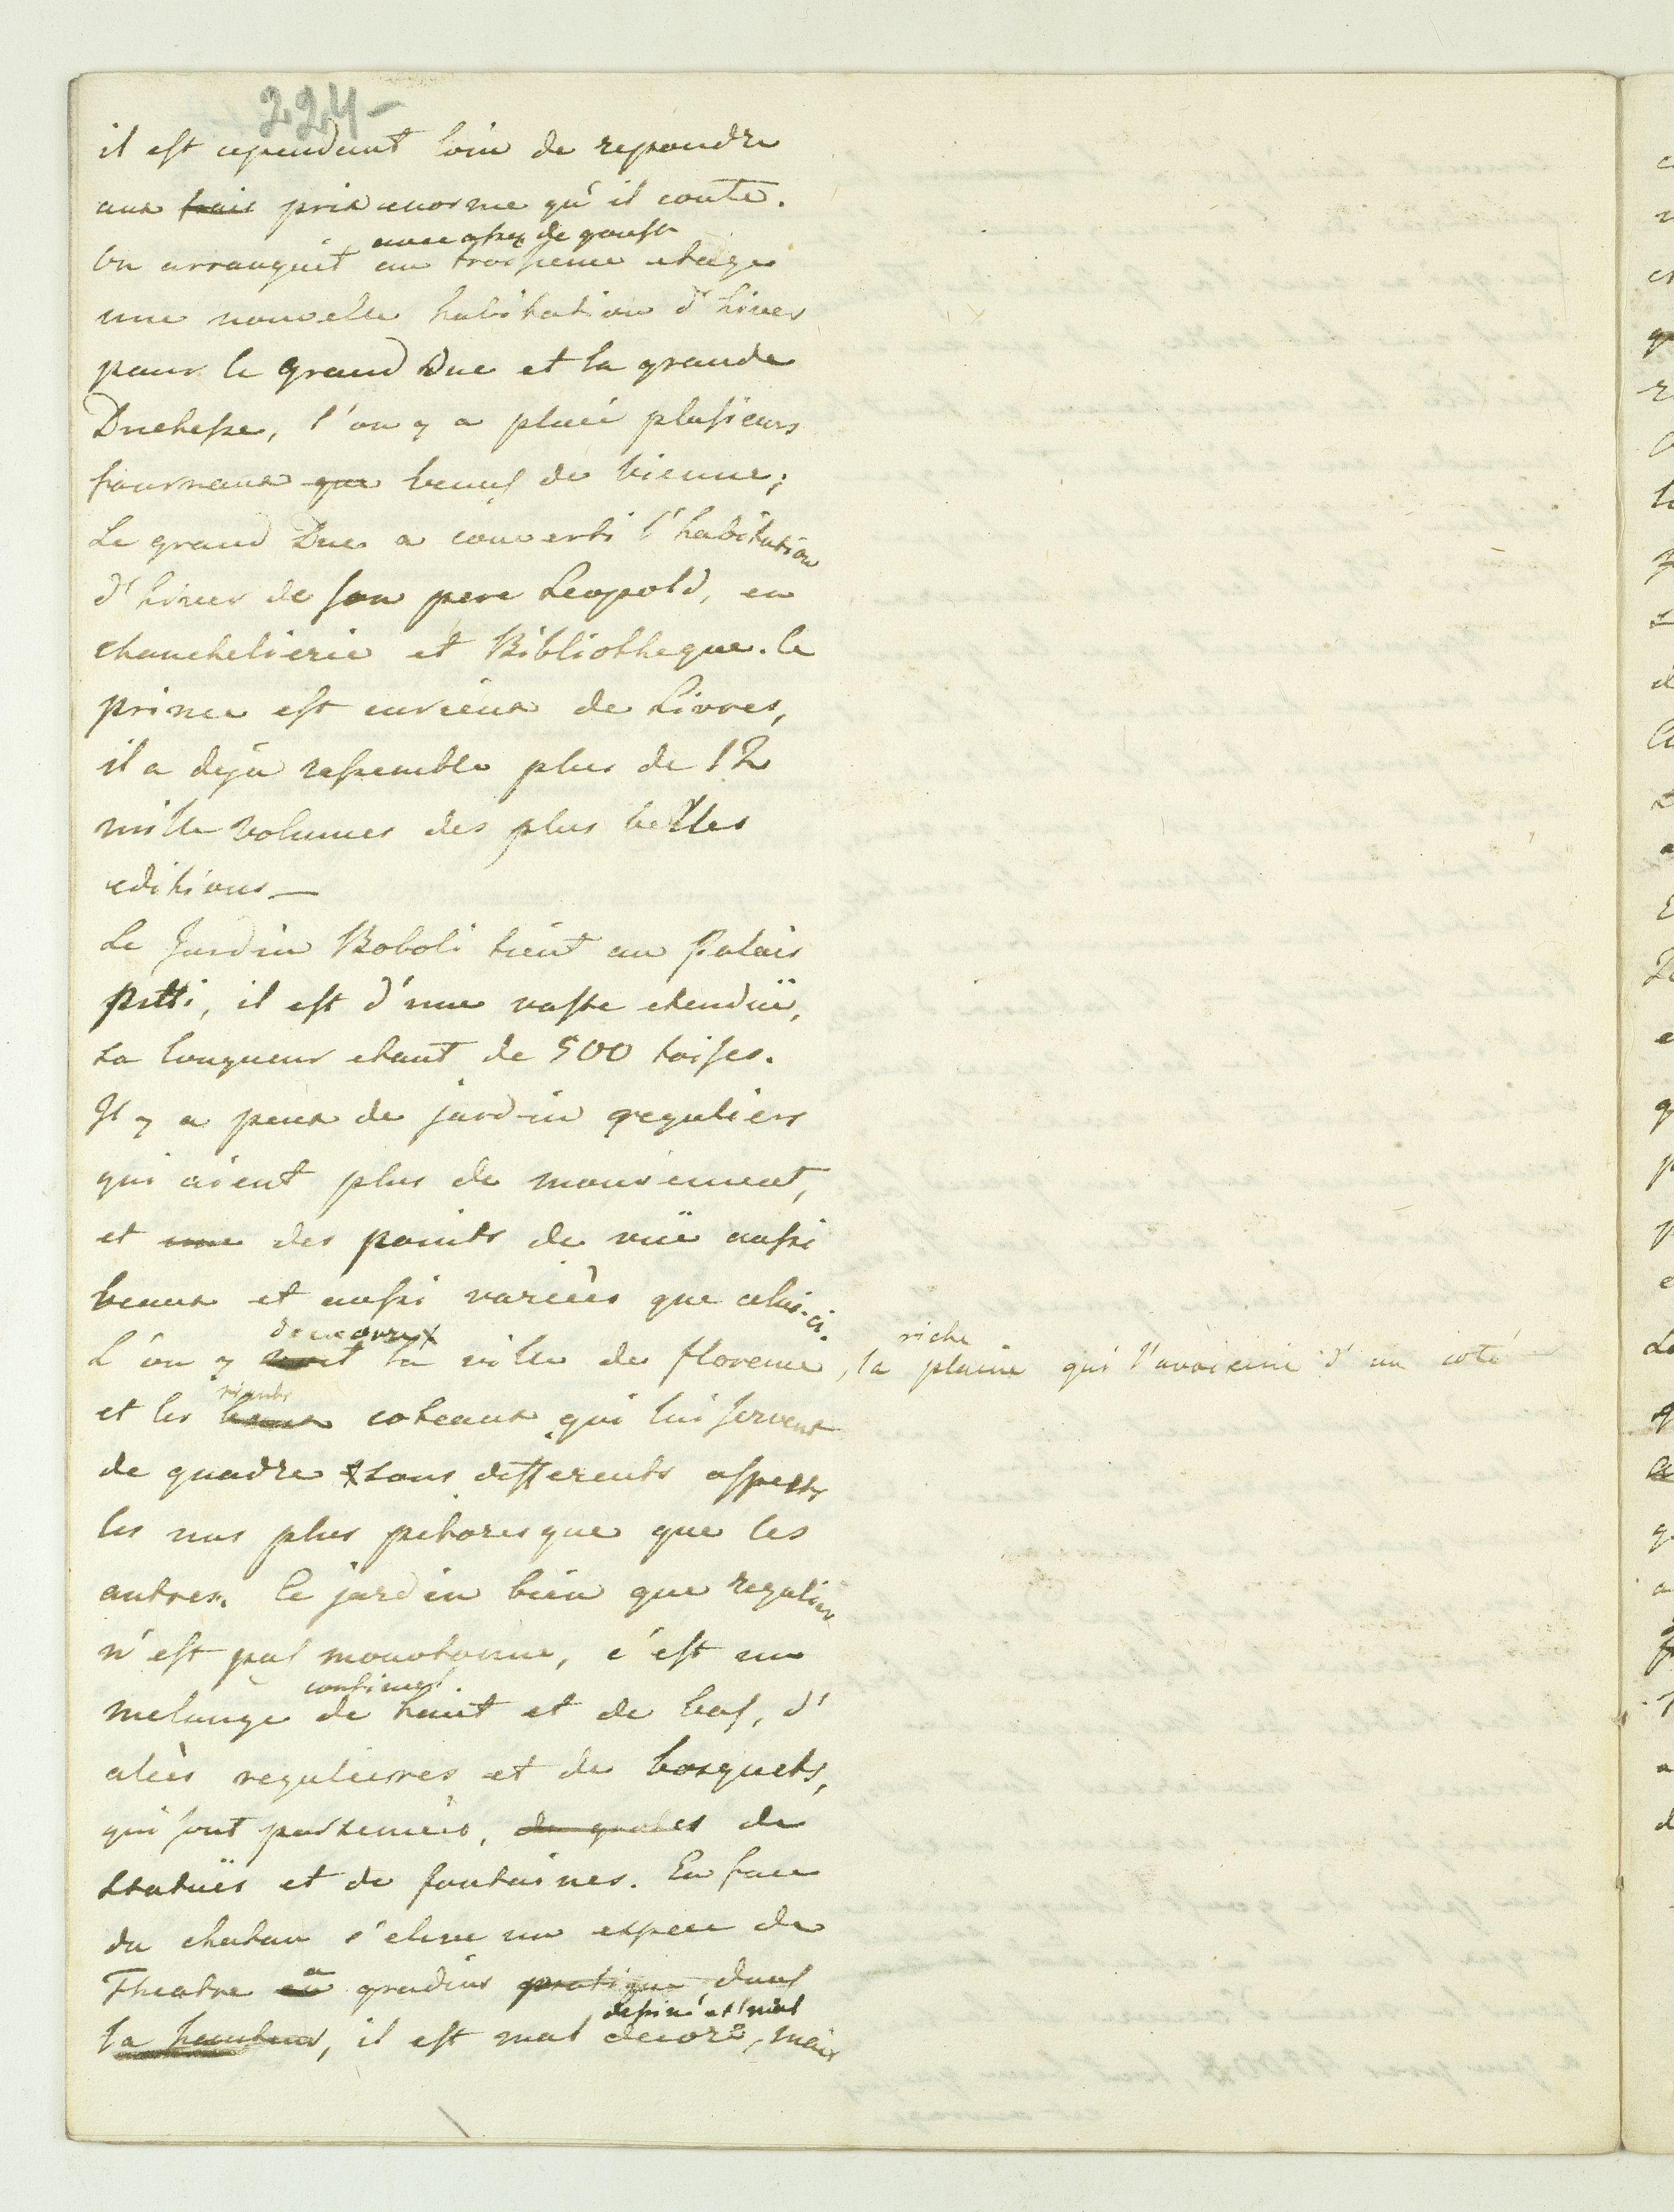 224-
il est cependant loin de repondre
aux frais prix enorme qu'il coute.
avec assez de goust
On arrangeit au troisieme etage
une nouvelle habitation d'hiver
pour le grand Duc et la grande
Duchesse, l'on y a placé plusieurs
fourneaux que venus de vienne;
Le grand Duc a converti l'habitation
d'hiver de son pere Leopold, en
chanchelierie et Bibliotheque. le
prince est curieux de Livres,
il a deja rassemble plus de 12
mille volumes des plus belles
editions —
Le Jardin Boboli tient au Palais
Pitti, il est d'une vaste etenduë,
sa longueur etant de 500 toises.
Il y a peux de jardin reguliers
qui aient plus de mouvement,
et une des points de vuë aussi
beaux et aussi varieès que celui-ci.
decouvre riche
L'on y voit la ville de florence, la plaine qui l'avoisine d'un coté
riants
et les beaux coteaux qui lui servent
de quadre sous differents aspects
les uns plus pitoresque que les
autres. Ce jardin bien que regulier
n'est pas monotonne, c'est un
continuel
melange de haut et de bas, d'
aleès regulieres et de bosquets,
qui sont parsemeès, de de
statuës et de fontaines. En face
du chatau s'eleve un espece de
Theatre en a gradins pratique dans
dessiné et mal
la hauteur, il est mal decoré, mais